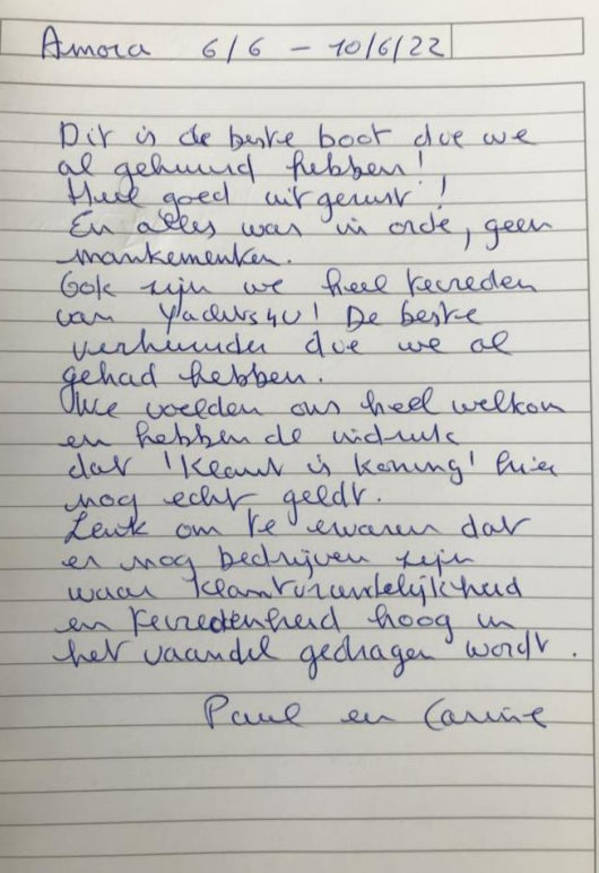 Amora 6/6 - 10/6/22
Dit is de beste boot die we
al gehuurd hebben!
Heel goed uitgerust!
En alles was in orde, geen
mankementen.
Ook zijn we heel tevreden
van Yachts4U! De beste
verhuurder die we al
gehad hebben.
We voelden ons heel welkom
en hebben de indruk
dat 'Klant is koning' hier
nog echt geldt.
Leuk om te ervaren dat
er nog bedrijven zijn
waar klantvriendelijkheid
en tevredenheid hoog in
het vaandel gedragen wordt.
Paul en Carine